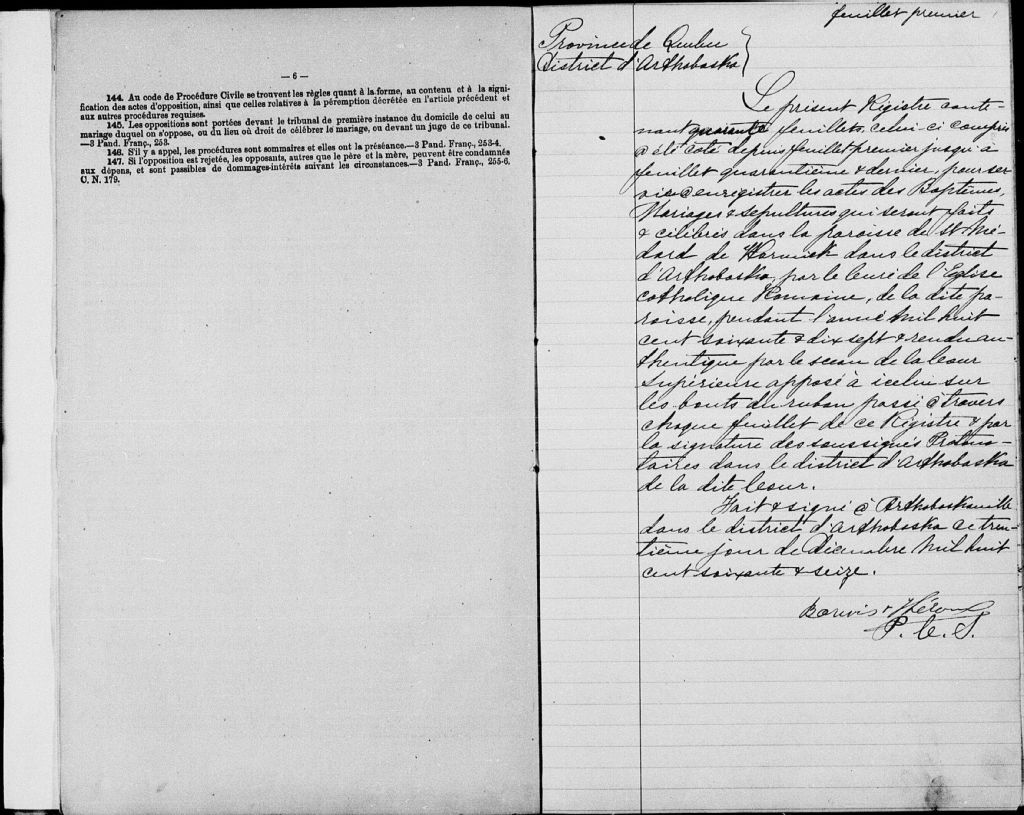 — 6 —
144. Au code de Procédure Civile se trouvent les règles quant à la forme, au contenu et à la signi-
fication des actes d'opposition, ainsi que celles relatives à la péremption décrétée en l'article précédent et
aux autres procédures requises.
145. Les oppositions sont portées devant le tribunal de première instance du domicile de celui au
mariage duquel on s'oppose, ou du lieu où droit de célébrer le mariage, ou devant un juge de ce tribunal.
—3 Pand. Franç., 253.
146. S'il y a appel, les procédures sont sommaires et elles ont la préséance.—3 Pand. Franç., 253-4.
147. Si l'opposition est rejetée, les opposants, autres que le père et la mère, peuvent être condamnés
aux dépens, et sont passibles de dommages-intérêts suivant les circonstances.—3 Pand. Franç., 255-6.
C. N. 179.
feuillet premier
Province de Québec
District d'Arthabaska
Le présent Registre conte-
nant quarante feuillets, celui-ci compris
a été coté depuis feuillet premier jusqu'à
feuillet quarantième & dernier, pour ser
vir à enregistrer les actes des Baptêmes,
Mariages & sépultures qui seront faits
& célébrés dans la paroisse de St Mé-
dard de Warwick dans le district
d'Arthabaska, par le Curé de l'Eglise
catholique Romaine, de la dite pa-
roisse, pendant l'année Mil huit
cent soixante & dix sept & rendu au-
thentique par le sceau de la Cour
Supérieure apposé à icelui sur
les bouts du ruban passé à travers
chaque feuillet de ce Registre & par
la signature des soussignés Protono-
taires dans le district d'Arthabaska
de la dite Cour.
Fait & signé à Arthabaskaville
dans le district d'Arthabaska ce tren-
tième jour de Décembre Mil huit
cent soixante & seize.
P. C. S.